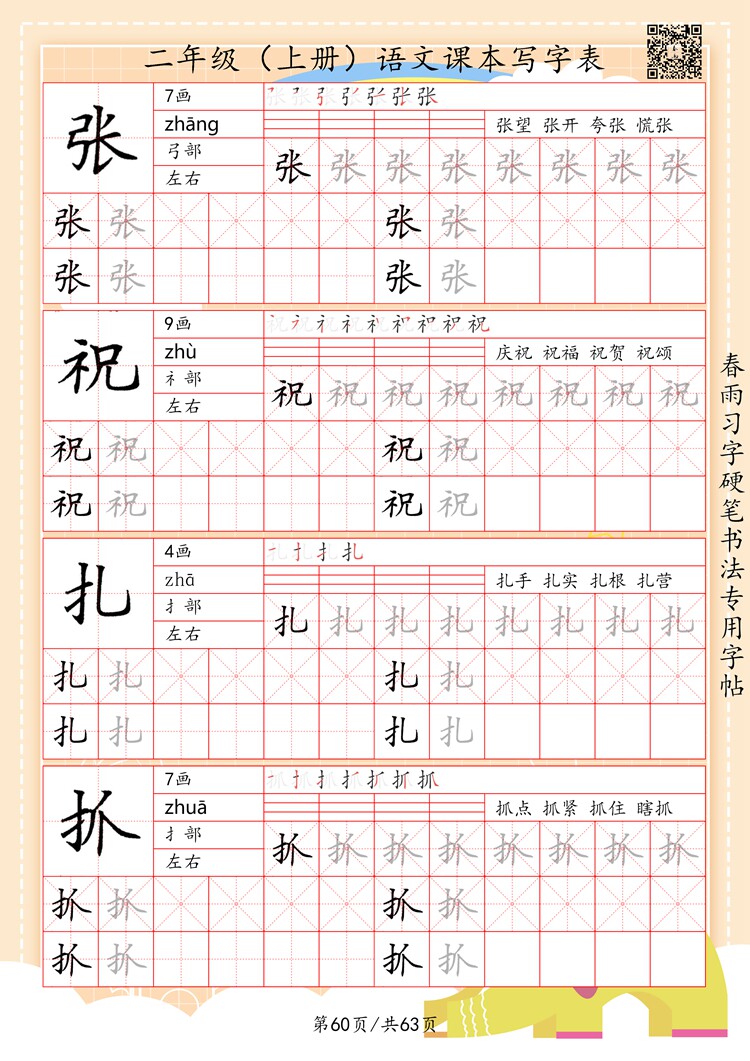 二年级（上册）语文课本写字表
张
7画
张 张 张 张 张 张 张
zhāng
张望 张开 夸张 慌张
弓部
左右
张 张 张 张 张 张 张 张
张 张 张 张
张 张 张 张
祝
9画
祝 祝 祝 祝 祝 祝 祝 祝 祝
zhù
庆祝 祝福 祝贺 祝颂
礻部
左右
祝 祝 祝 祝 祝 祝 祝 祝
祝 祝 祝 祝
祝 祝 祝 祝
扎
4画
扎 扎 扎 扎
zhā
扎手 扎实 扎根 扎营
扌部
左右
扎 扎 扎 扎 扎 扎 扎 扎
扎 扎 扎 扎
扎 扎 扎 扎
抓
7画
抓 抓 抓 抓 抓 抓 抓
zhuā
抓点 抓紧 抓住 瞎抓
扌部
左右
抓 抓 抓 抓 抓 抓 抓 抓
抓 抓 抓 抓
抓 抓 抓 抓
春雨习字硬笔书法专用字帖
第60页/共63页